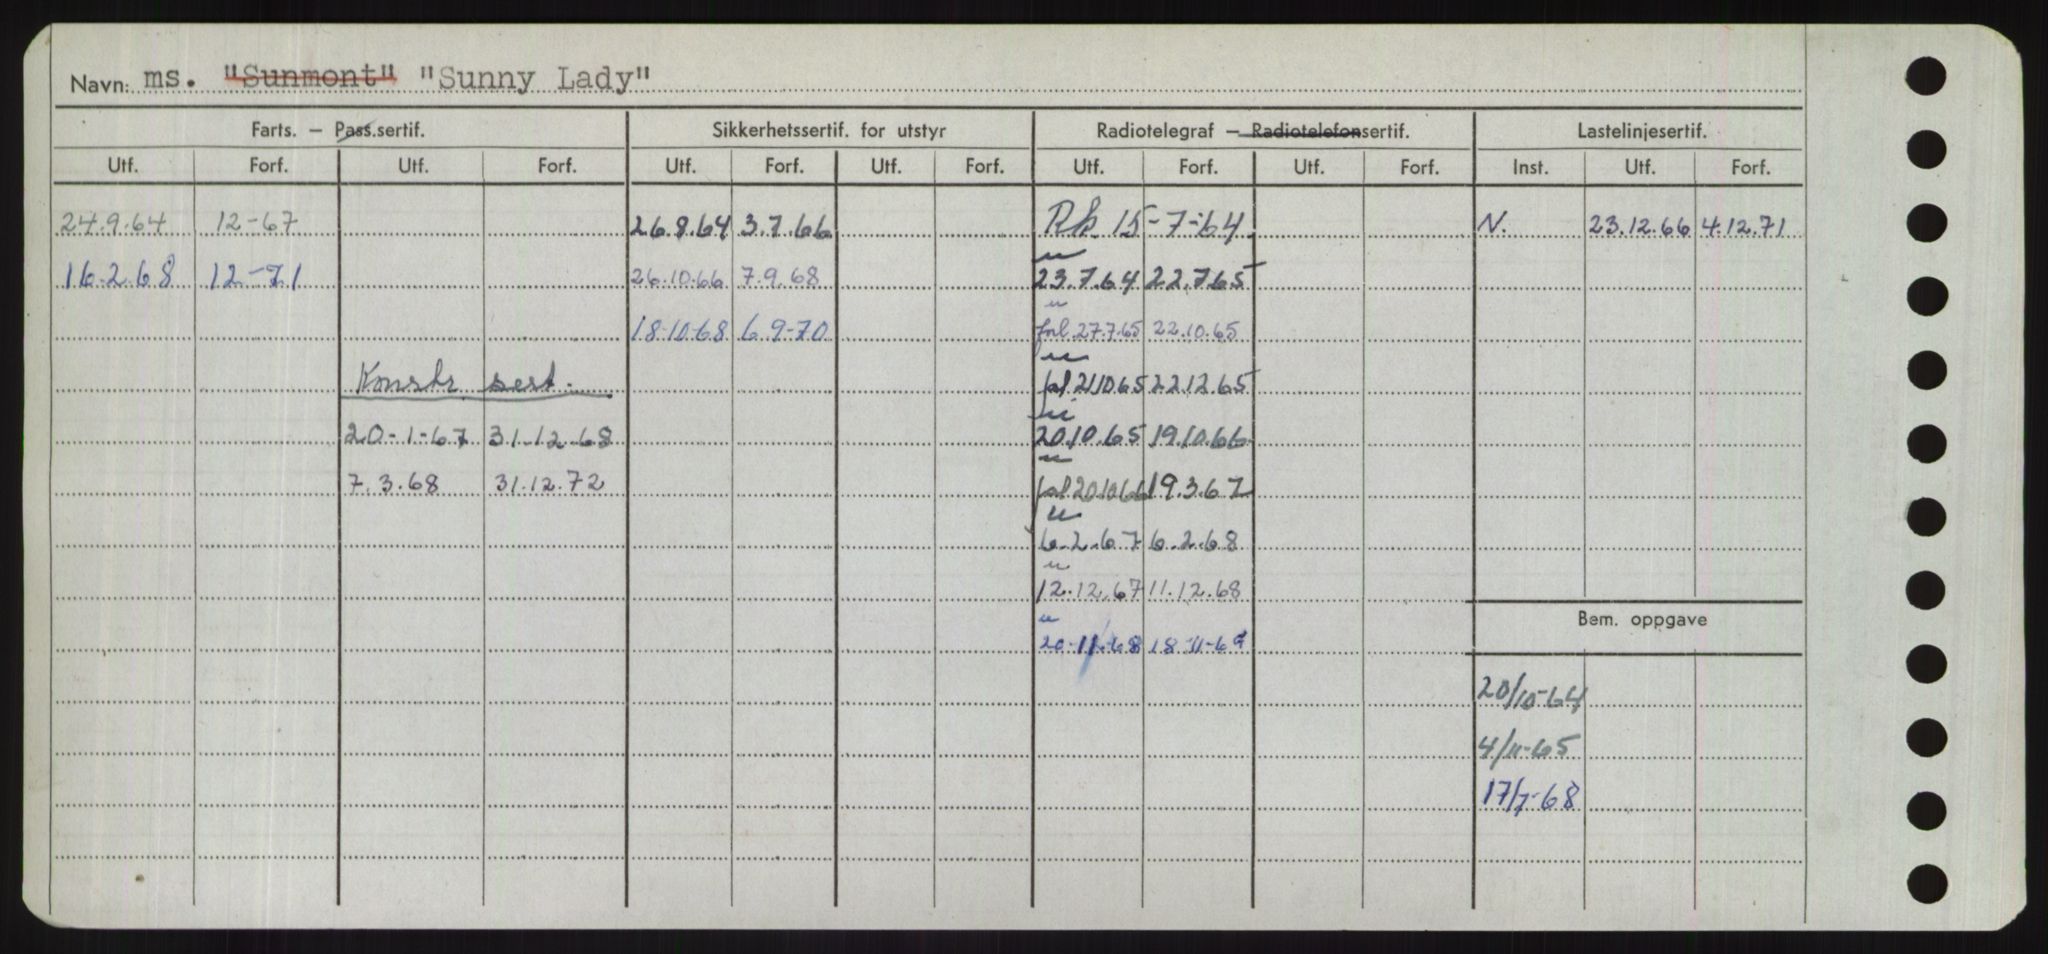 Navn: ms. "Sunmont" "Sunny Lady"
Farts. – Pass.sertif. Sikkerhetssertif. for utstyr Radiotelegraf – Radiotelefonsertif. Lastelinjesertif.
Utf. Forf. Utf. Forf. Utf. Forf. Utf. Forf. Utf. Forf. Utf. Forf. Inst. Utf. Forf.
24.9.64 12-67 26.8.64 3.7.66 Rk. 15-7-64 N. 23.12.66 4.12.71
16.2.68 12-71 26.10.66 7.9.68 23.7.64 22.7.65
18-10-68 6.9-70 forl. 27.7.65 22.10.65
Konstr sert. 21.10.65 22.12.65
20-1-67 31.12.68 20.10.65 19.10.66
7.3.68 31.12.72 20.10.66 19.3.67
6.2.67 6.2.68
12.12.67 11.12.68
Bem. oppgave
20-11-68 18-11-69
20/10-64
4/11-65
17/7-68